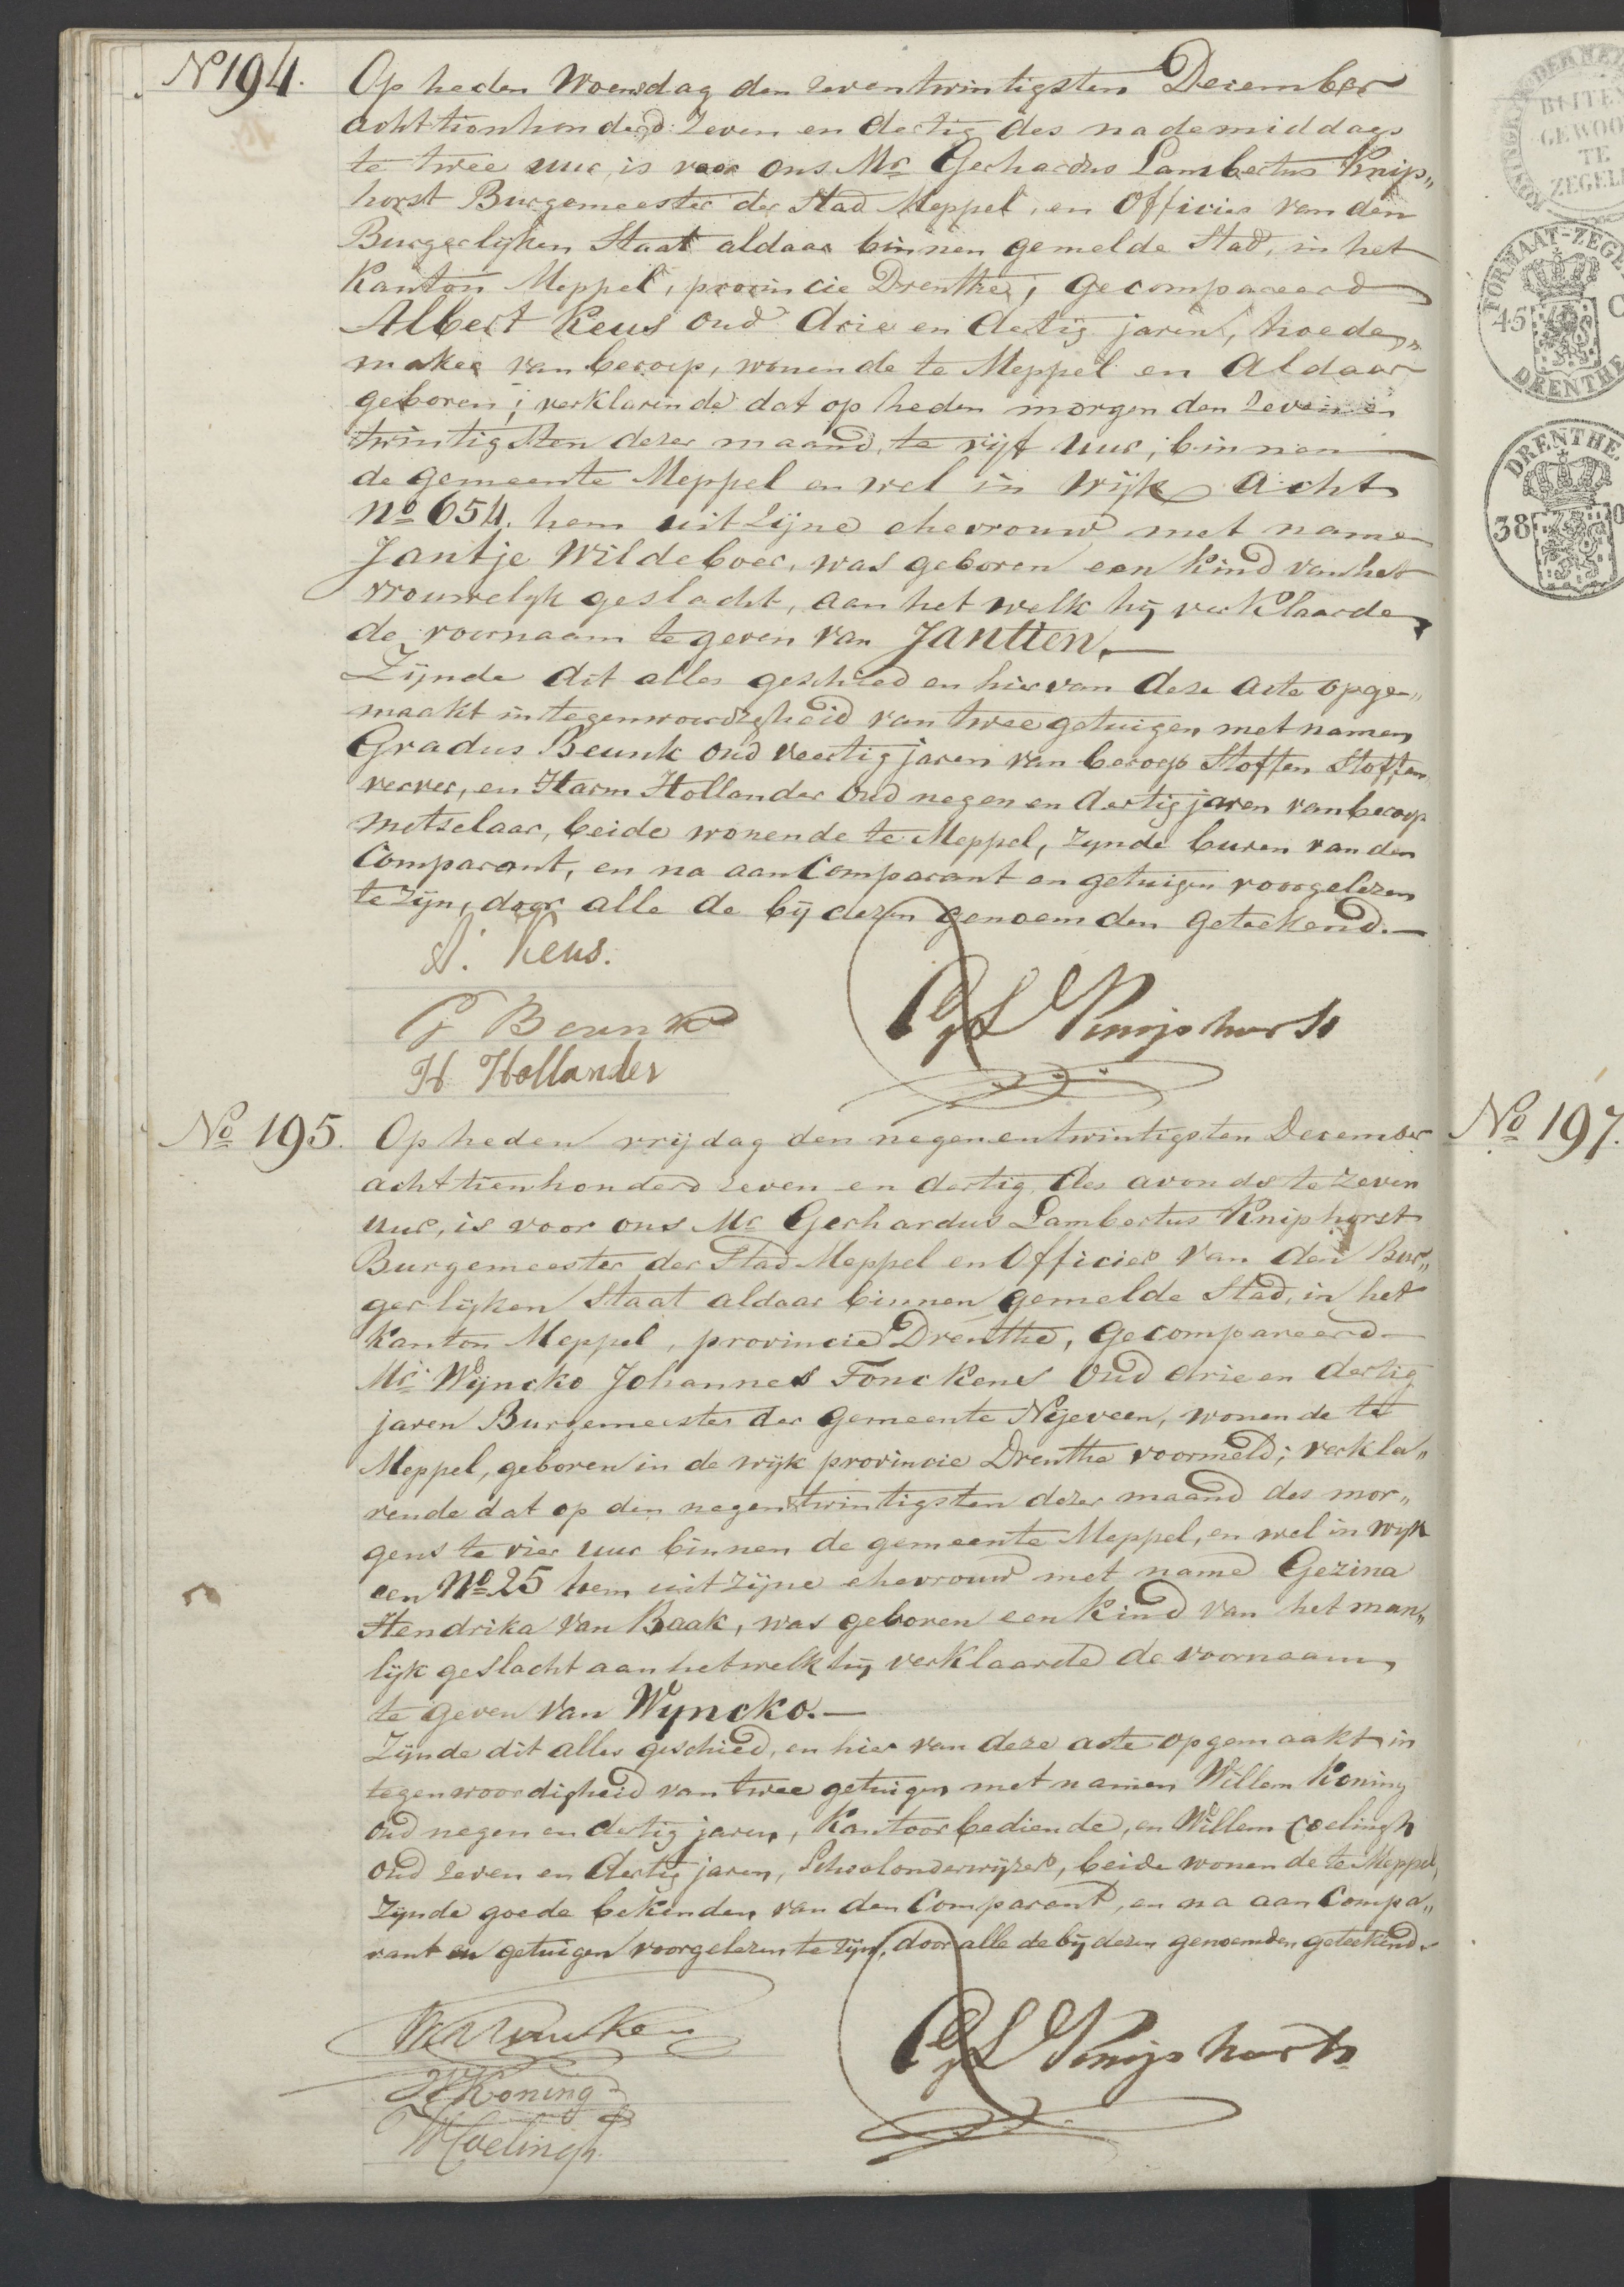 No 194. Op heden Woensdag den zeven twintigsten December
acht tien honderd Zeven en dertig des nademiddags
te twee uur, is voor ons Mr Gerhardus Lambertus Knip„
horst Burgemeester der Stad Meppel, en Officier van den
Burgerlyken Staat aldaar binnen gemelde Stad, in het
Kanton Meppel, provincie Drenthe, gecompareerd
Albert Keus oud drie en dertig jaren, hoede„
maker van beroep, wonende te Meppel en aldaar
geboren; verklarende dat op heden morgen den zeven en
twintigsten dezer maand, te vijf uur, binnen
de gemeente Meppel en wel in wijk acht
No 654. hem uit zijne ehevrouw met name
Jantje Wildeboer, was geboren een kind van het
vrouwelyk geslacht, aan het welk hij verklaarde
de voornaam te geven van Jantien.—
Zijnde dit alles geschied en hier van deze acte opge„
maakt in tegenwoordigheid van twee getuigen met namen
Gradus Beunk oud veertig jaren van beroep Stoffen Stoffen
verver, en Harm Hollander oud negen en dertig jaren van beroep
metselaar, beide wonende te Meppel, zynde buren van den
Comparant, en na aan Comparant en getuigen voorgelezen
te zijn, door alle de bij dezen genoemden geteekend.—
A. Keus.
G Beunk
GL Kniphorst
H. Hollander
No 195. Op heden vrijdag den negenentwintigsten December
acht tien honderd zeven en dertig des avonds te zeven
uur, is voor ons Mr Gerhardus Lambertus Kniphorst
Burgemeester der Stad Meppel en Officier van den Bur„
gerlijken Staat aldaar binnen gemelde Stad, in het
Kanton Meppel, provincie Drenthe, gecompareerd
Mr Wijncko Johannes Tonckens oud drie en dertig
jaren Burgemeester der gemeente Nijeveen, wonende te
Meppel, geboren in de wijk provincie Drenthe voormeld; verkla„
rende dat op den negen twintigsten dezer maand des mor„
gens te vier uur binnen de gemeente Meppel, en wel in wijk
een No 25 hem uit zijne ehevrouw met name Gezina
Hendrika van Baak, was geboren een kind van het man„
lijk geslacht aan het welk hij verklaarde de voornaam
te geven van Wyncko.—
Zijnde dit alles geschied, en hier van deze acte opgemaakt in
tegenwoordigheid van twee getuigen met namen Willem Koning
oud negen en dertig jaren, Kantoorbediende, en Willem Coelingh
oud zeven en dertig jaren, Schoolonderwijzer, beide wonende te Meppel,
zijnde goede bekenden van den Comparant, en na aan Compa„
rant en getuigen voorgelezen te zijn, door alle de bij dezen genoemden geteekend.
GL Kniphorst
W Koning
W Coelingh.
No 197.
BUITEN
GEWOO
TE
ZEGEL
FORMAAT-ZEGE
45 C
DRENTHE
DRENTHE.
38